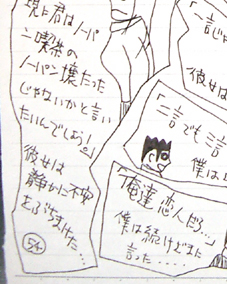 君はノーパ
ン喫茶の
ノーパン嬢だった
じゃないかと言い
たいんでしょう!。」
彼女は
静かに不安
をぶちまけた…
54
彼女は
「二言でも三言
僕は
「俺達恋人だろ…」
僕は続けざまに
言った.....